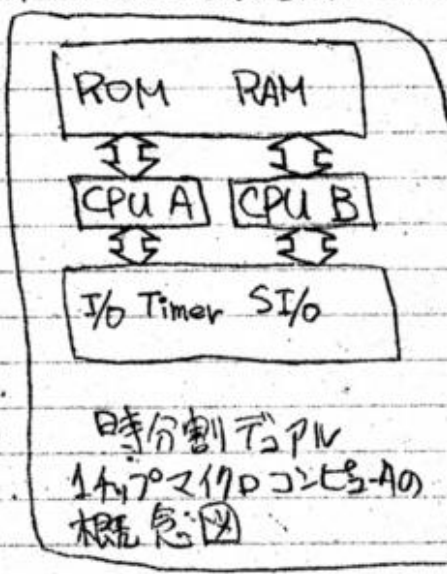 ROM RAM
CPU A CPU B
I/O Timer SI/O
時分割デュアル
1チップマイクロコンピュータの
概念図